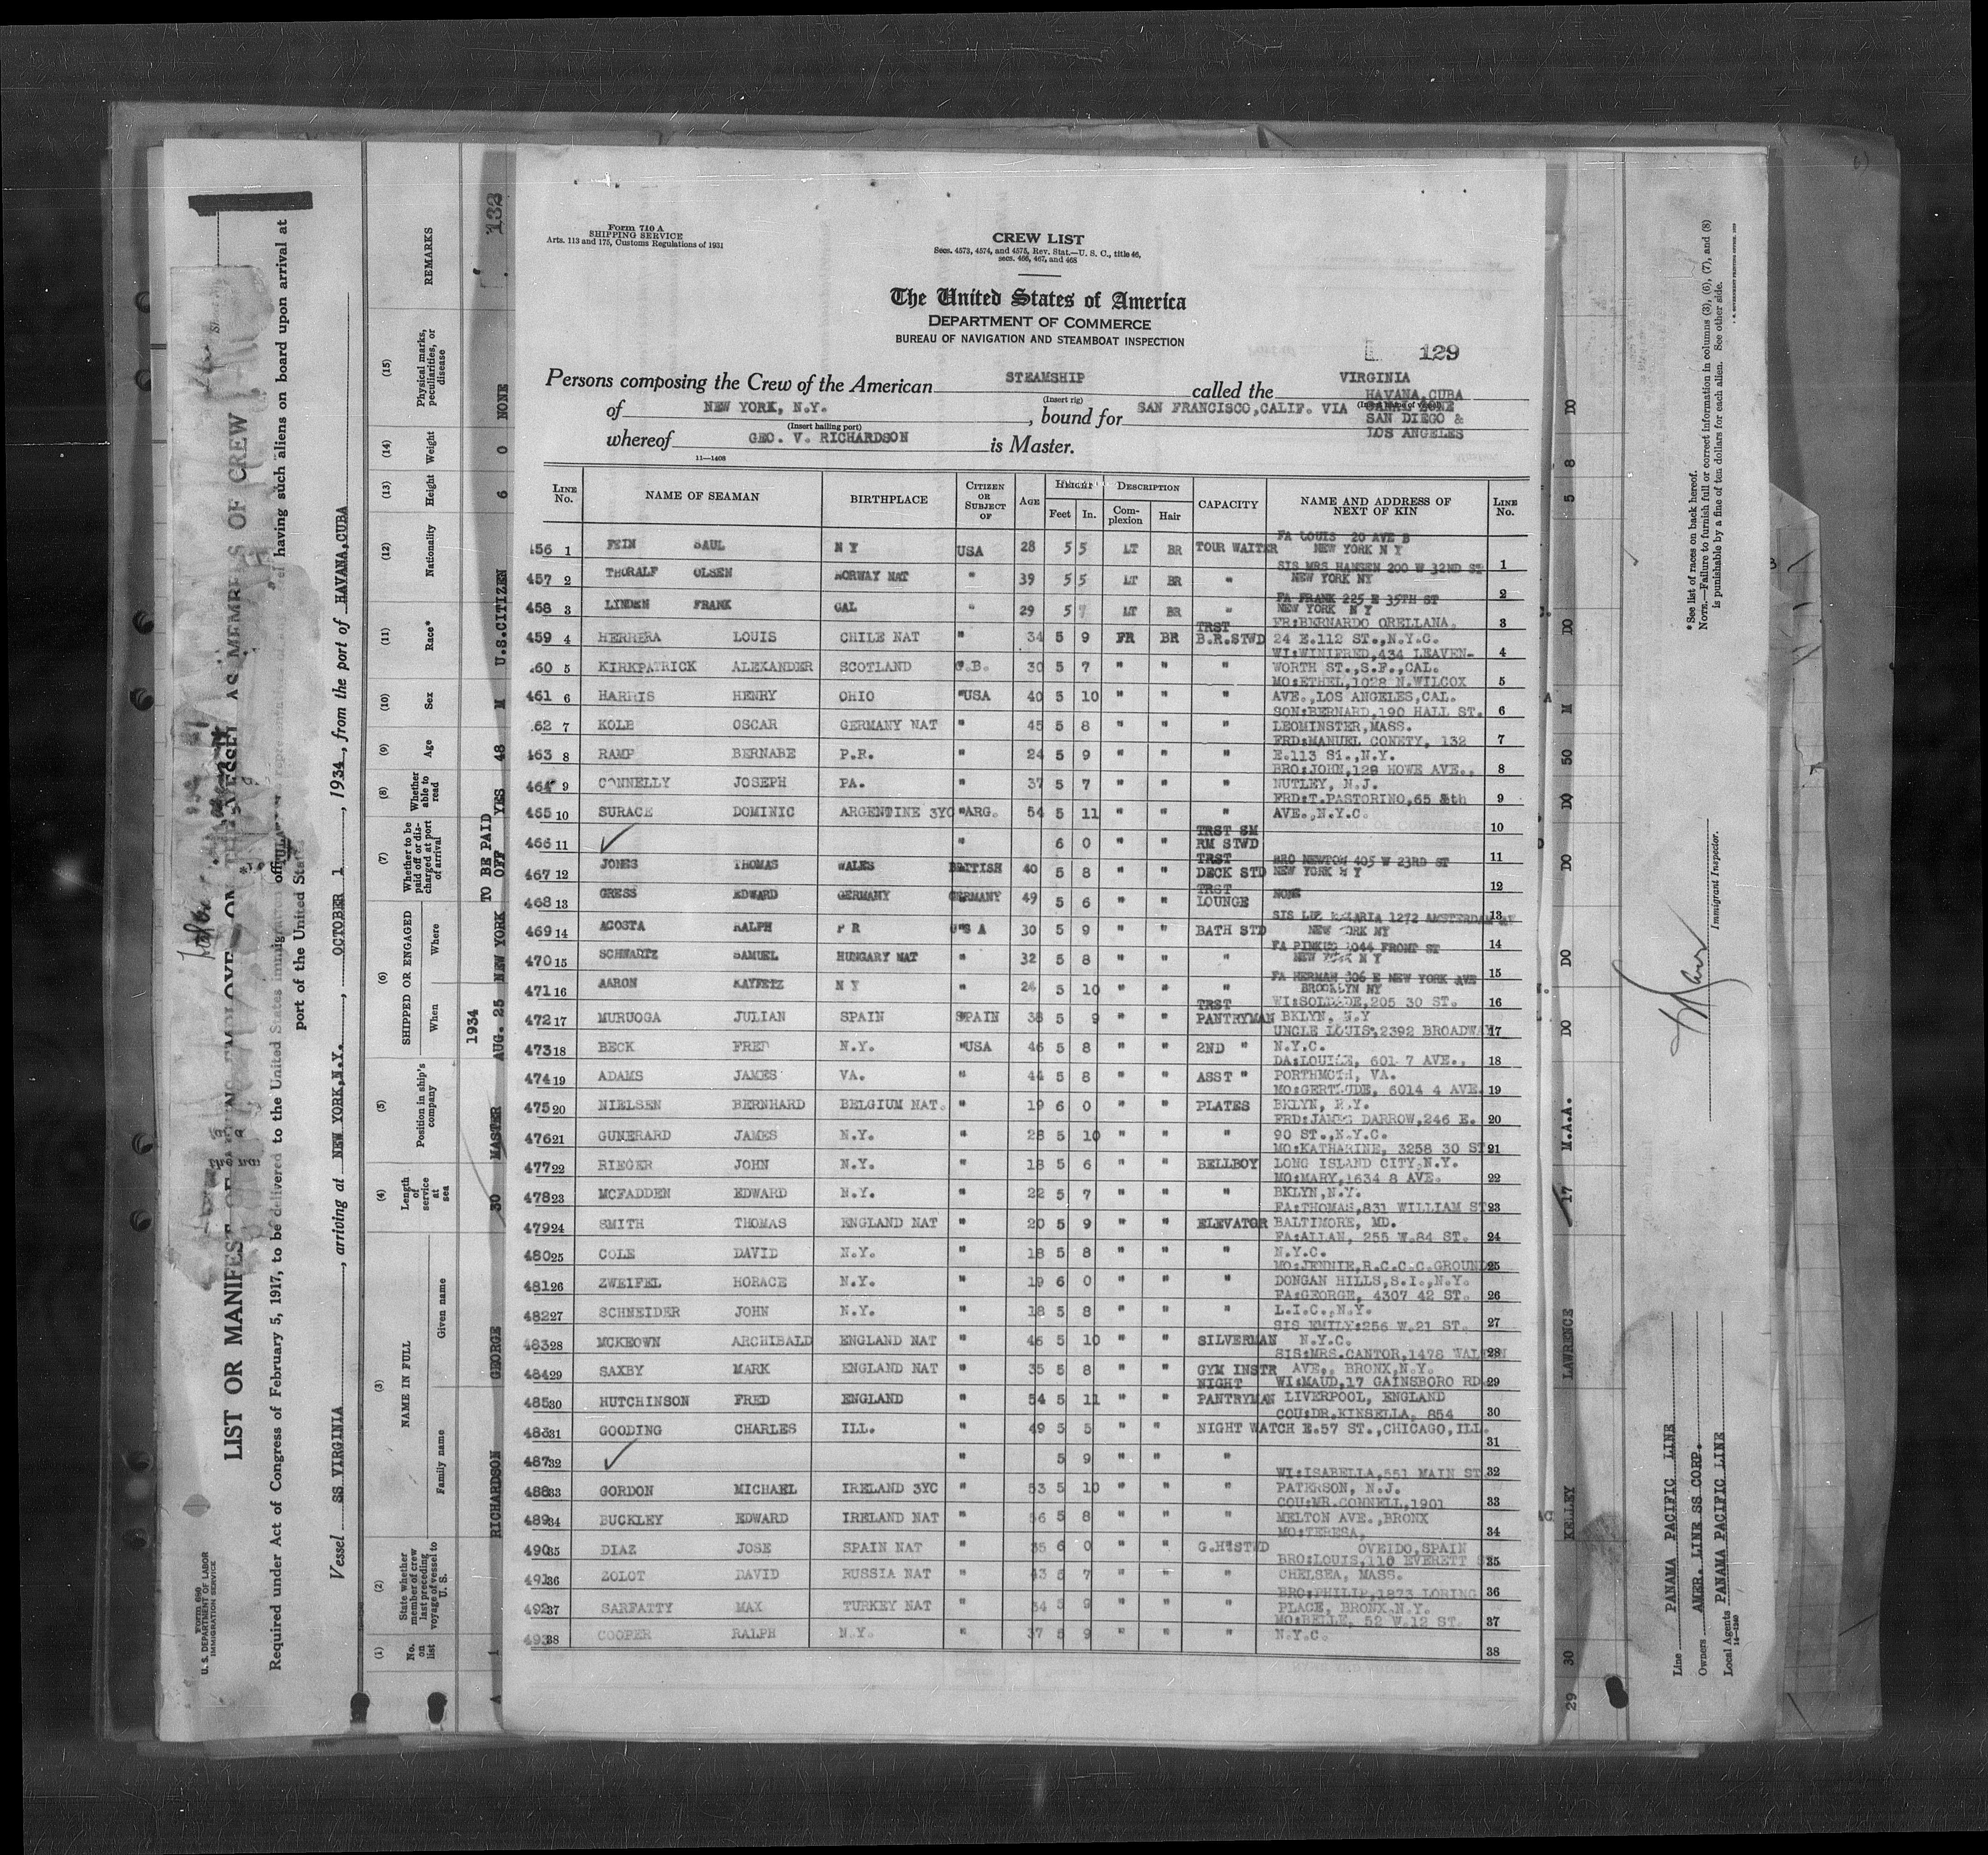 Form 710 A
SHIPPING SERVICE
Arts. 113 and 175, Customs Regulations of 1931
CREW LIST
Secs. 4573, 4574, and 4575, Rev. Stat.—U. S. C., title 46,
secs. 466, 467, and 468
The United States of America
DEPARTMENT OF COMMERCE
BUREAU OF NAVIGATION AND STEAMBOAT INSPECTION
129
Persons composing the Crew of the American STEAMSHIP called the VIRGINIA
(Insert rig)
of NEW YORK, N.Y., bound for SAN FRANCISCO, CALIF. VIA HAVANA, CUBA
SAN DIEGO &
LOS ANGELES
(Insert hailing port)
whereof GEO. V. RICHARDSON is Master.
11—1408
LINE No. NAME OF SEAMAN BIRTHPLACE CITIZEN OR SUBJECT OF AGE HEIGHT Feet In. DESCRIPTION Complexion Hair CAPACITY NAME AND ADDRESS OF NEXT OF KIN LINE No.
456 1 FEIN SAUL N Y USA 28 5 5 LT BR TOUR WAITER FA LOUIS 20 AVE B NEW YORK N Y 1
457 2 THORALF OLSEN NORWAY NAT " 39 5 5 LT BR " SIS MRS HANSEN 200 W 32ND ST NEW YORK NY 2
458 3 LINDEN FRANK CAL " 29 5 7 LT BR " FA FRANK 225 E 35TH ST NEW YORK N Y 3
459 4 HERRERA LOUIS CHILE NAT " 34 5 9 FR BR TRST B.R.STWD FR:BERNARDO ORELLANA, 24 E.112 ST.,N.Y.C. 4
60 5 KIRKPATRICK ALEXANDER SCOTLAND G.B. 30 5 7 " " " WI:WINIFRED,434 LEAVEN-WORTH ST.,S.F.,CAL. 5
461 6 HARRIS HENRY OHIO "USA 40 5 10 " " " MO:ETHEL,1028 N.WILCOX AVE.,LOS ANGELES,CAL. 6
62 7 KOLB OSCAR GERMANY NAT " 45 5 8 " " " SON:BERNARD,190 HALL ST. LEOMINSTER,MASS. 7
463 8 RAMP BERNABE P.R. " 24 5 9 " " " FRD:MANUEL CONETY, 132 E.113 St.,N.Y. 8
464 9 CONNELLY JOSEPH PA. " 37 5 7 " " " BRO:JOHN,128 HOWE AVE., NUTLEY, N.J. 9
465 10 SURACE DOMINIC ARGENTINE 3YC "ARG. 54 5 11 " " " FRD:T.PASTORINO,65 8th AVE.,N.Y.C. 10
466 11 6 0 " " TRST SM RM STWD 11
467 12 JONES THOMAS WALES BRITISH 40 5 8 " " TRST DECK STD BRO NEWTON 405 W 23RD ST NEW YORK N Y 12
468 13 GRESS EDWARD GERMANY GERMANY 49 5 6 " " TRST LOUNGE NONE 13
469 14 ACOSTA RALPH P R U S A 30 5 9 " " BATH STD 1272 AMSTERDAM AV NEW YORK NY 14
470 15 SCHWARTZ SAMUEL HUNGARY NAT " 32 5 8 " " " FA PINKUS 1044 FRONT ST NEW YORK N Y 15
471 16 AARON KAYFETZ N Y " 24 5 10 " " " FA HERMAN 306 E NEW YORK AVE BROOKLYN NY 16
472 17 MURUOGA JULIAN SPAIN SPAIN 38 5 9 " " TRST PANTRYMAN 205 30 ST. BKLYN, N.Y 17
473 18 BECK FRED N.Y. "USA 46 5 8 " " 2ND " UNCLE LOUIS,2392 BROADWAY N.Y.C. 18
474 19 ADAMS JAMES VA. " 44 5 8 " " ASST " DA:LOUISE, 601 7 AVE., PORTHMOTH, VA. 19
475 20 NIELSEN BERNHARD BELGIUM NAT. " 19 6 0 " " PLATES MO:GERTRUDE, 6014 4 AVE. BKLYN, N.Y. 20
476 21 GUNERARD JAMES N.Y. " 28 5 10 " " " FRD:JAMES DARROW,246 E. 90 ST.,N.Y.C. 21
477 22 RIEGER JOHN N.Y. " 18 5 6 " " BELLBOY MO:KATHARINE, 3258 30 ST LONG ISLAND CITY,N.Y. 22
478 23 MCFADDEN EDWARD N.Y. " 22 5 7 " " " MO:MARY,1634 8 AVE. BKLYN,N.Y. 23
479 24 SMITH THOMAS ENGLAND NAT " 20 5 9 " " ELEVATOR FA:THOMAS,831 WILLIAM ST BALTIMORE, MD. 24
480 25 COLE DAVID N.Y. " 18 5 8 " " " FA:ALLAN, 255 W.84 ST. N.Y.C. 25
481 26 ZWEIFEL HORACE N.Y. " 19 6 0 " " " MO:JENNIE,R.C.C.C.GROUNDS DONGAN HILLS,S.I.,N.Y. 26
482 27 SCHNEIDER JOHN N.Y. " 18 5 8 " " " FA:GEORGE, 4307 42 ST. L.I.C.,N.Y. 27
483 28 MCKEOWN ARCHIBALD ENGLAND NAT " 46 5 10 " " SILVERMAN SIS EMILY:256 W.21 ST. N.Y.C. 28
484 29 SAXBY MARK ENGLAND NAT " 35 5 8 " " GYM INSTR SIS:MRS.CANTOR,1478 WALTON AVE., BRONX,N.Y. 29
485 30 HUTCHINSON FRED ENGLAND " 54 5 11 " " NIGHT PANTRYMAN WI:MAUD,17 GAINSBORO RD. LIVERPOOL, ENGLAND 30
486 31 GOODING CHARLES ILL. " 49 5 5 " " NIGHT WATCH COU:DR.KINSELLA, 854 E.57 ST.,CHICAGO,ILL. 31
487 32 " 5 9 " " " 32
488 33 GORDON MICHAEL IRELAND 3YC " 53 5 10 " " " WI:ISABELLA,551 MAIN ST PATERSON, N.J. 33
489 34 BUCKLEY EDWARD IRELAND NAT " 56 5 8 " " " COU:MR.CONNELL,1901 MELTON AVE.,BRONX 34
490 35 DIAZ JOSE SPAIN NAT " 35 6 0 " " G.H.STWD MO:TERESA, OVEIDO,SPAIN 35
491 36 ZOLOT DAVID RUSSIA NAT " 43 5 7 " " " BRO:LOUIS,110 EVERETT CHELSEA, MASS. 36
492 37 SARFATTY MAX TURKEY NAT " 34 5 9 " " " BRO:PHILIP,1873 LORING PLACE, BRONX,N.Y. 37
493 38 COOPER RALPH N.Y. " 37 5 9 " " " MO:BELLE, 52 W.12 ST. N.Y.C. 38
Form 680
U. S. DEPARTMENT OF LABOR
IMMIGRATION SERVICE
LIST OR MANIFEST OF ON THE VESSEL AS MEMBERS OF CREW
Required under Act of Congress of February 5, 1917, to be delivered to the United States immigration of having such aliens on board upon arrival at
port of the United States
Vessel SS VIRGINIA, arriving at NEW YORK,N.Y., OCTOBER 1, 1934, from the port of HAVANA,CUBA
(1) No. on list
(2) State whether member of crew last preceding voyage of vessel to U. S.
(3) NAME IN FULL Family name Given name
(4) Length of service at sea
(5) Position in ship's company
(6) SHIPPED OR ENGAGED When Where
(7) Whether to be paid off or discharged at port of arrival
(8) Whether able to read
(9) Age
(10) Sex
(11) Race*
(12) Nationality
(13) Height
(14) Weight
(15) Physical marks, peculiarities, or disease
REMARKS
132
1934 TO BE PAID
A 1 RICHARDSON GEORGE 30 MASTER AUG. 25 NEW YORK OFF YES 48 M U.S.CITIZEN 6 0 NONE
29 30 KELLEY LAWRENCE 17 M.A.A. DO DO DO DO 50 M DO 5 8 DO
Line PANAMA PACIFIC LINE
Owners AMER. LINE SS CORP.
Local Agents PANAMA PACIFIC LINE
Immigrant Inspector.
*See list of races on back hereof.
NOTE.—Failure to furnish full or correct information in columns (3), (6), (7), and (8)
is punishable by a fine of ten dollars for each alien. See other side.